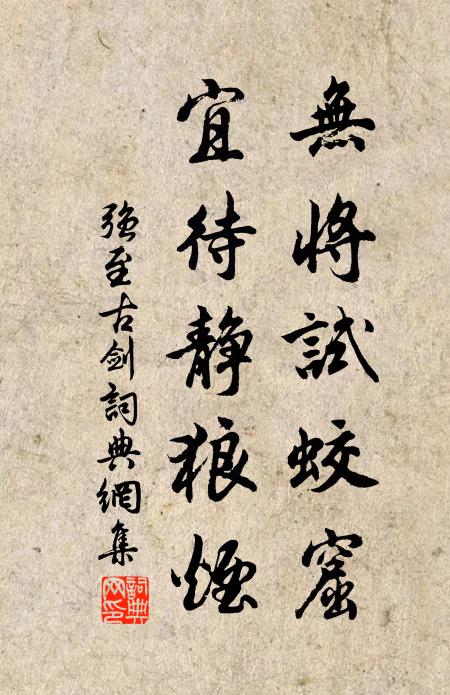 無將試蛟窟
宜待静狼煙
强至古劍詞典網集
詞典網印